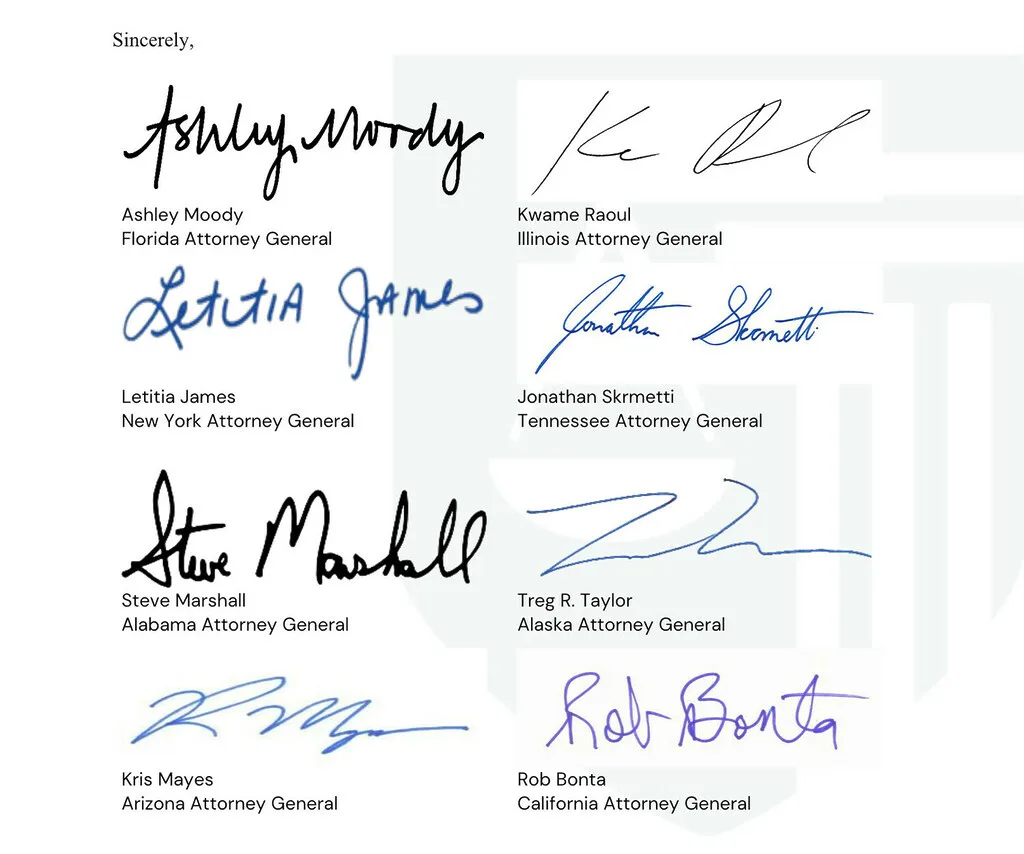 Sincerely,
Ashley Moody
Ashley Moody
Florida Attorney General
Kwame Raoul
Illinois Attorney General
Letitia James
Letitia James
New York Attorney General
Jonathan Skrmetti
Jonathan Skrmetti
Tennessee Attorney General
Steve Marshall
Steve Marshall
Alabama Attorney General
Treg R. Taylor
Alaska Attorney General
Kris Mayes
Arizona Attorney General
Rob Bonta
Rob Bonta
California Attorney General